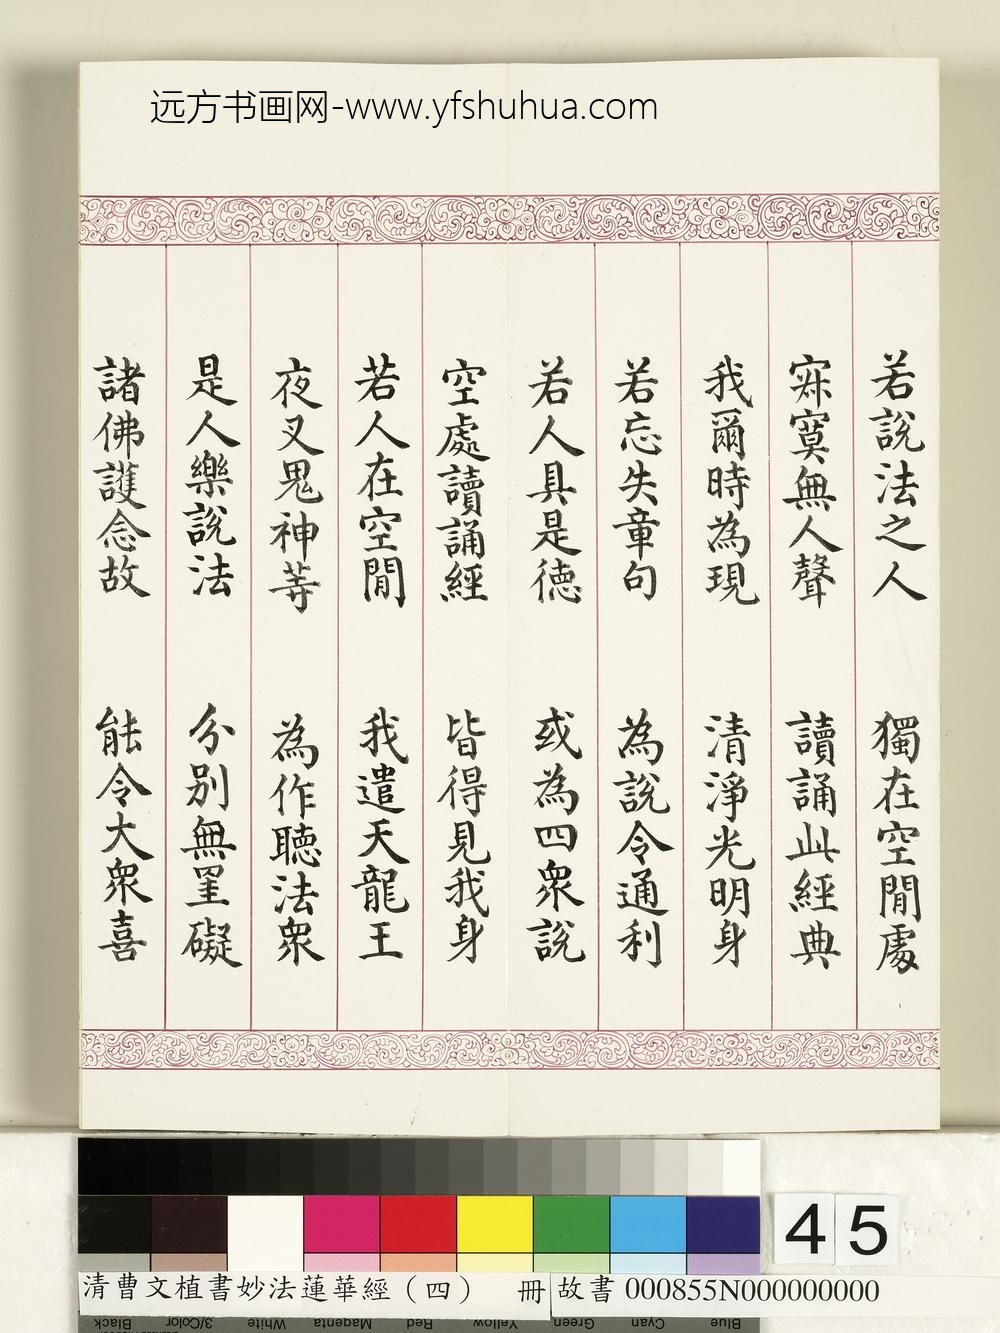 远方书画网-www.yfshuhua.com
若說法之人 獨在空閒處
寂寞無人聲 讀誦此經典
我爾時為現 清淨光明身
若忘失章句 為說令通利
若人具是德 或為四眾說
空處讀誦經 皆得見我身
若人在空閒 我遣天龍王
夜叉鬼神等 為作聽法眾
是人樂說法 分別無罣礙
諸佛護念故 能令大眾喜
45
清曹文植書妙法蓮華經(四) 冊 故書 000855N000000000
Black 3/Color White Magenta Red Yellow Green Cyan Blue